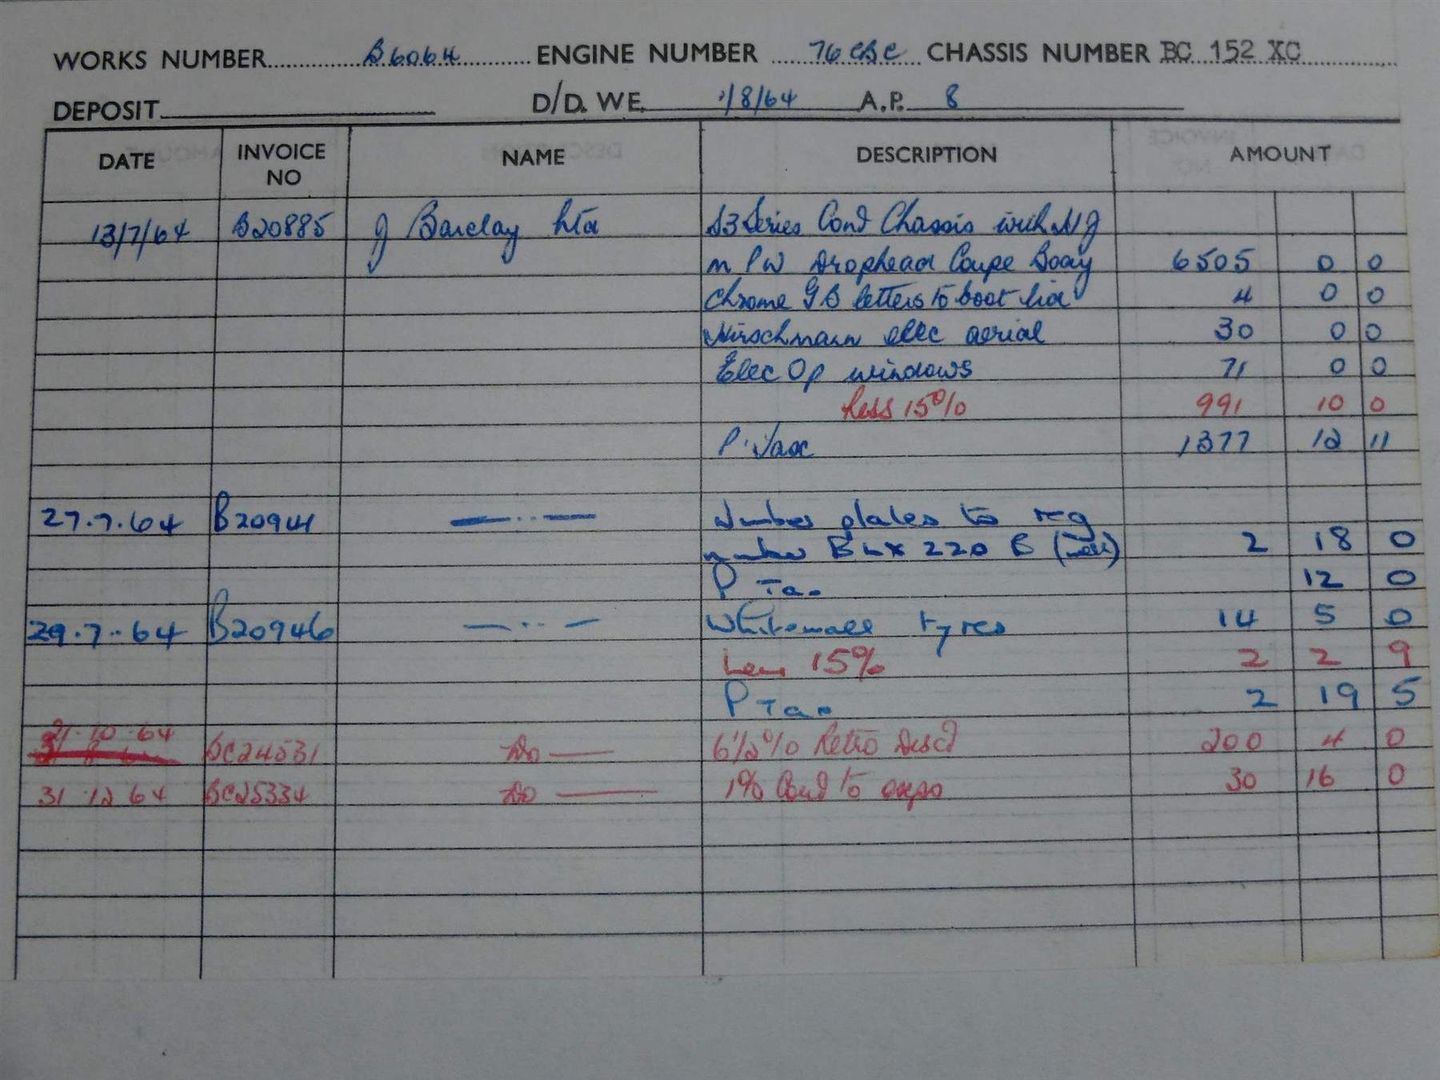 WORKS NUMBER B6064 ENGINE NUMBER 76 CBC CHASSIS NUMBER BC 152 XC
DEPOSIT D/D. WE 1/8/64 A.P. 8
DATE INVOICE NO NAME DESCRIPTION AMOUNT
13/7/64 B20885 J Barclay Ltd S3 Series Cont Chassis with HJ
M P W Drophead Coupe Body 6505 0 0
Chrome GB letters to boot lid 4 0 0
Hirschmann elec aerial 30 0 0
Elec Op windows 71 0 0
Less 15% 991 10 0
P. Tax 1377 12 11
27.7.64 B20941 — .. — Number plates to reg
number BLX 220 B 2 18 0
P Tax 12 0
29.7.64 B20946 — .. — Whitewall tyres 14 5 0
Less 15% 2 2 9
P Tax 2 19 5
31.10.64 BC24531 Do — Retro Disct 200 4 0
31 12 64 BC25334 Do — 1% Cont to expo 30 16 0